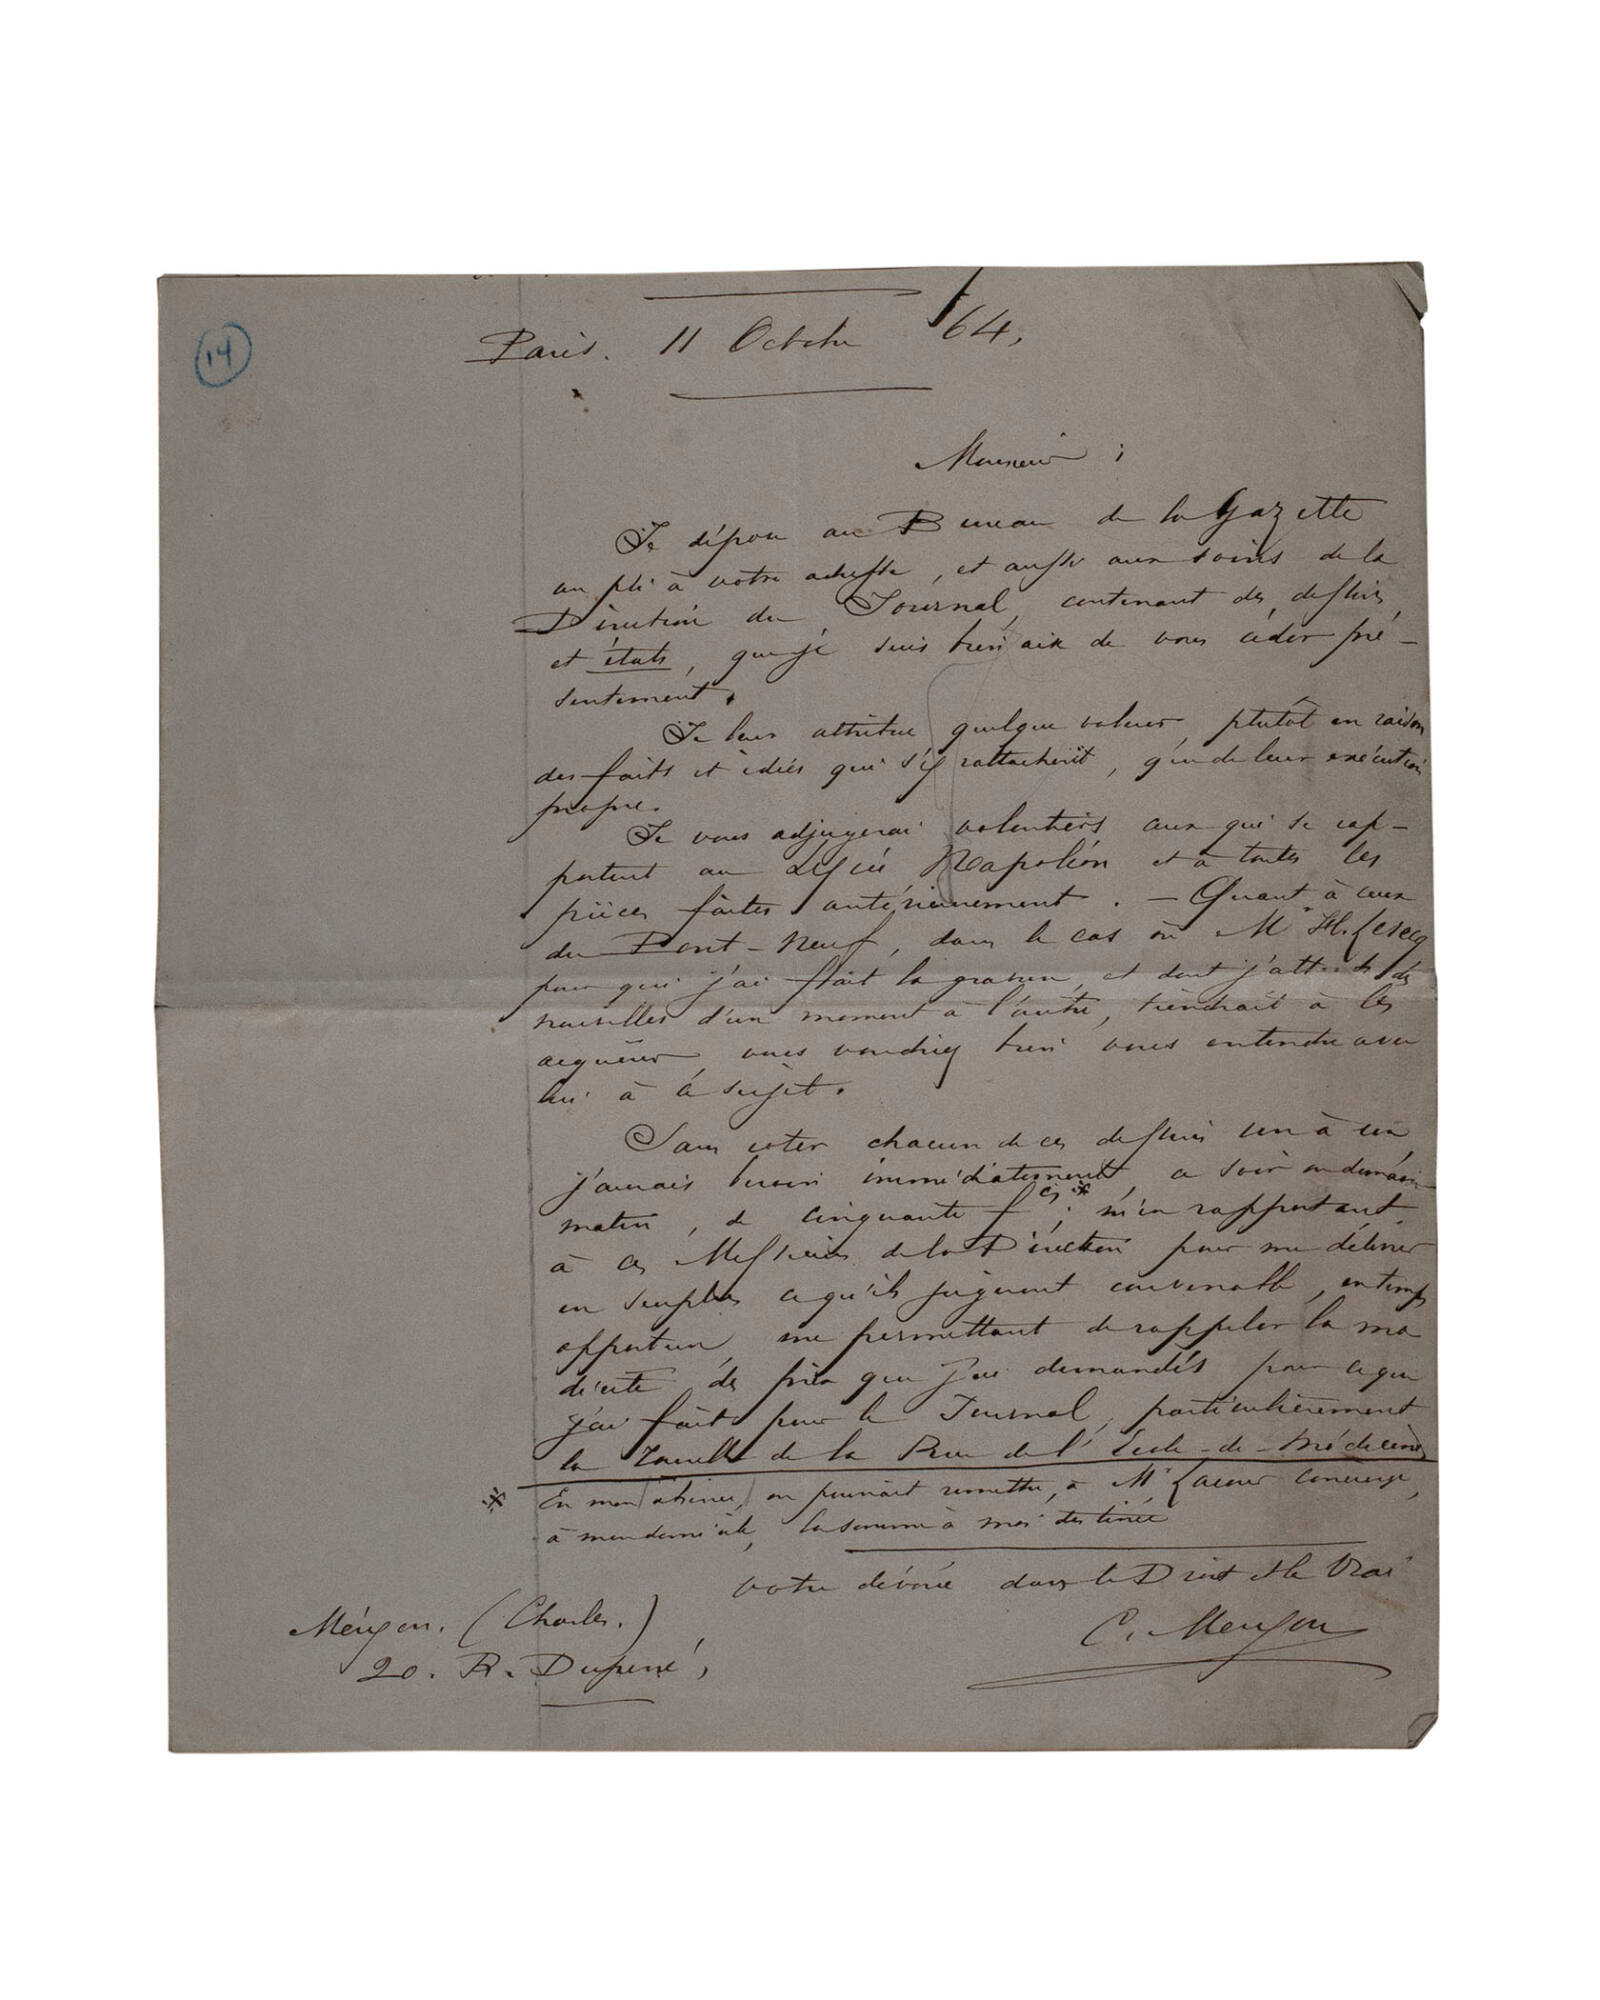 14
Paris. 11 Octobre 64,
Monsieur ;
Je dépose au Bureau de la Gazette
un pli à votre adresse, et aussi aux soins de la
Direction du Journal, contenant des dessins,
et états, que je suis bien aise de vous céder pré-
sentement.
Je leur attribue quelque valeur, plutôt en raison
des faits et idées qui s'y rattachent, que de leur exécution
propre.
Je vous adjugerai volontiers ceux qui se rap-
portent au Lycée Napoléon et à toutes les
pièces faites antérieurement. — Quant à ceux
du Pont-Neuf, dans le cas où Mr H.
pour qui j'ai fait la gravure, et dont j'attends des
nouvelles d'un moment à l'autre, tiendrait à les
acquérir, vous voudriez bien vous entendre avec
lui à ce sujet.
Sans coter chacun de ces dessins un à un
j'aurais besoin immédiatement, ce soir ou demain
matin, de cinquante fcs * ; m'en rapportant
à ces Messieurs de la Direction pour me délivrer
en surplus ce qu'ils jugeront convenable, en temps
opportun, me permettant de rappeler la mo
dicité des prix que j'ai demandés pour ce que
j'ai fait pour le Journal, particulièrement
la Tourelle de la Rue de l'École-de-Médecine
* En mon absence, on pourrait remettre, à Mr Lacour concierge,
à mon domicile, la somme à moi destinée
votre dévoué dans le Droit et le Vrai
C. Meryon
Méryon. (Charles.)
20. R. Duperré,